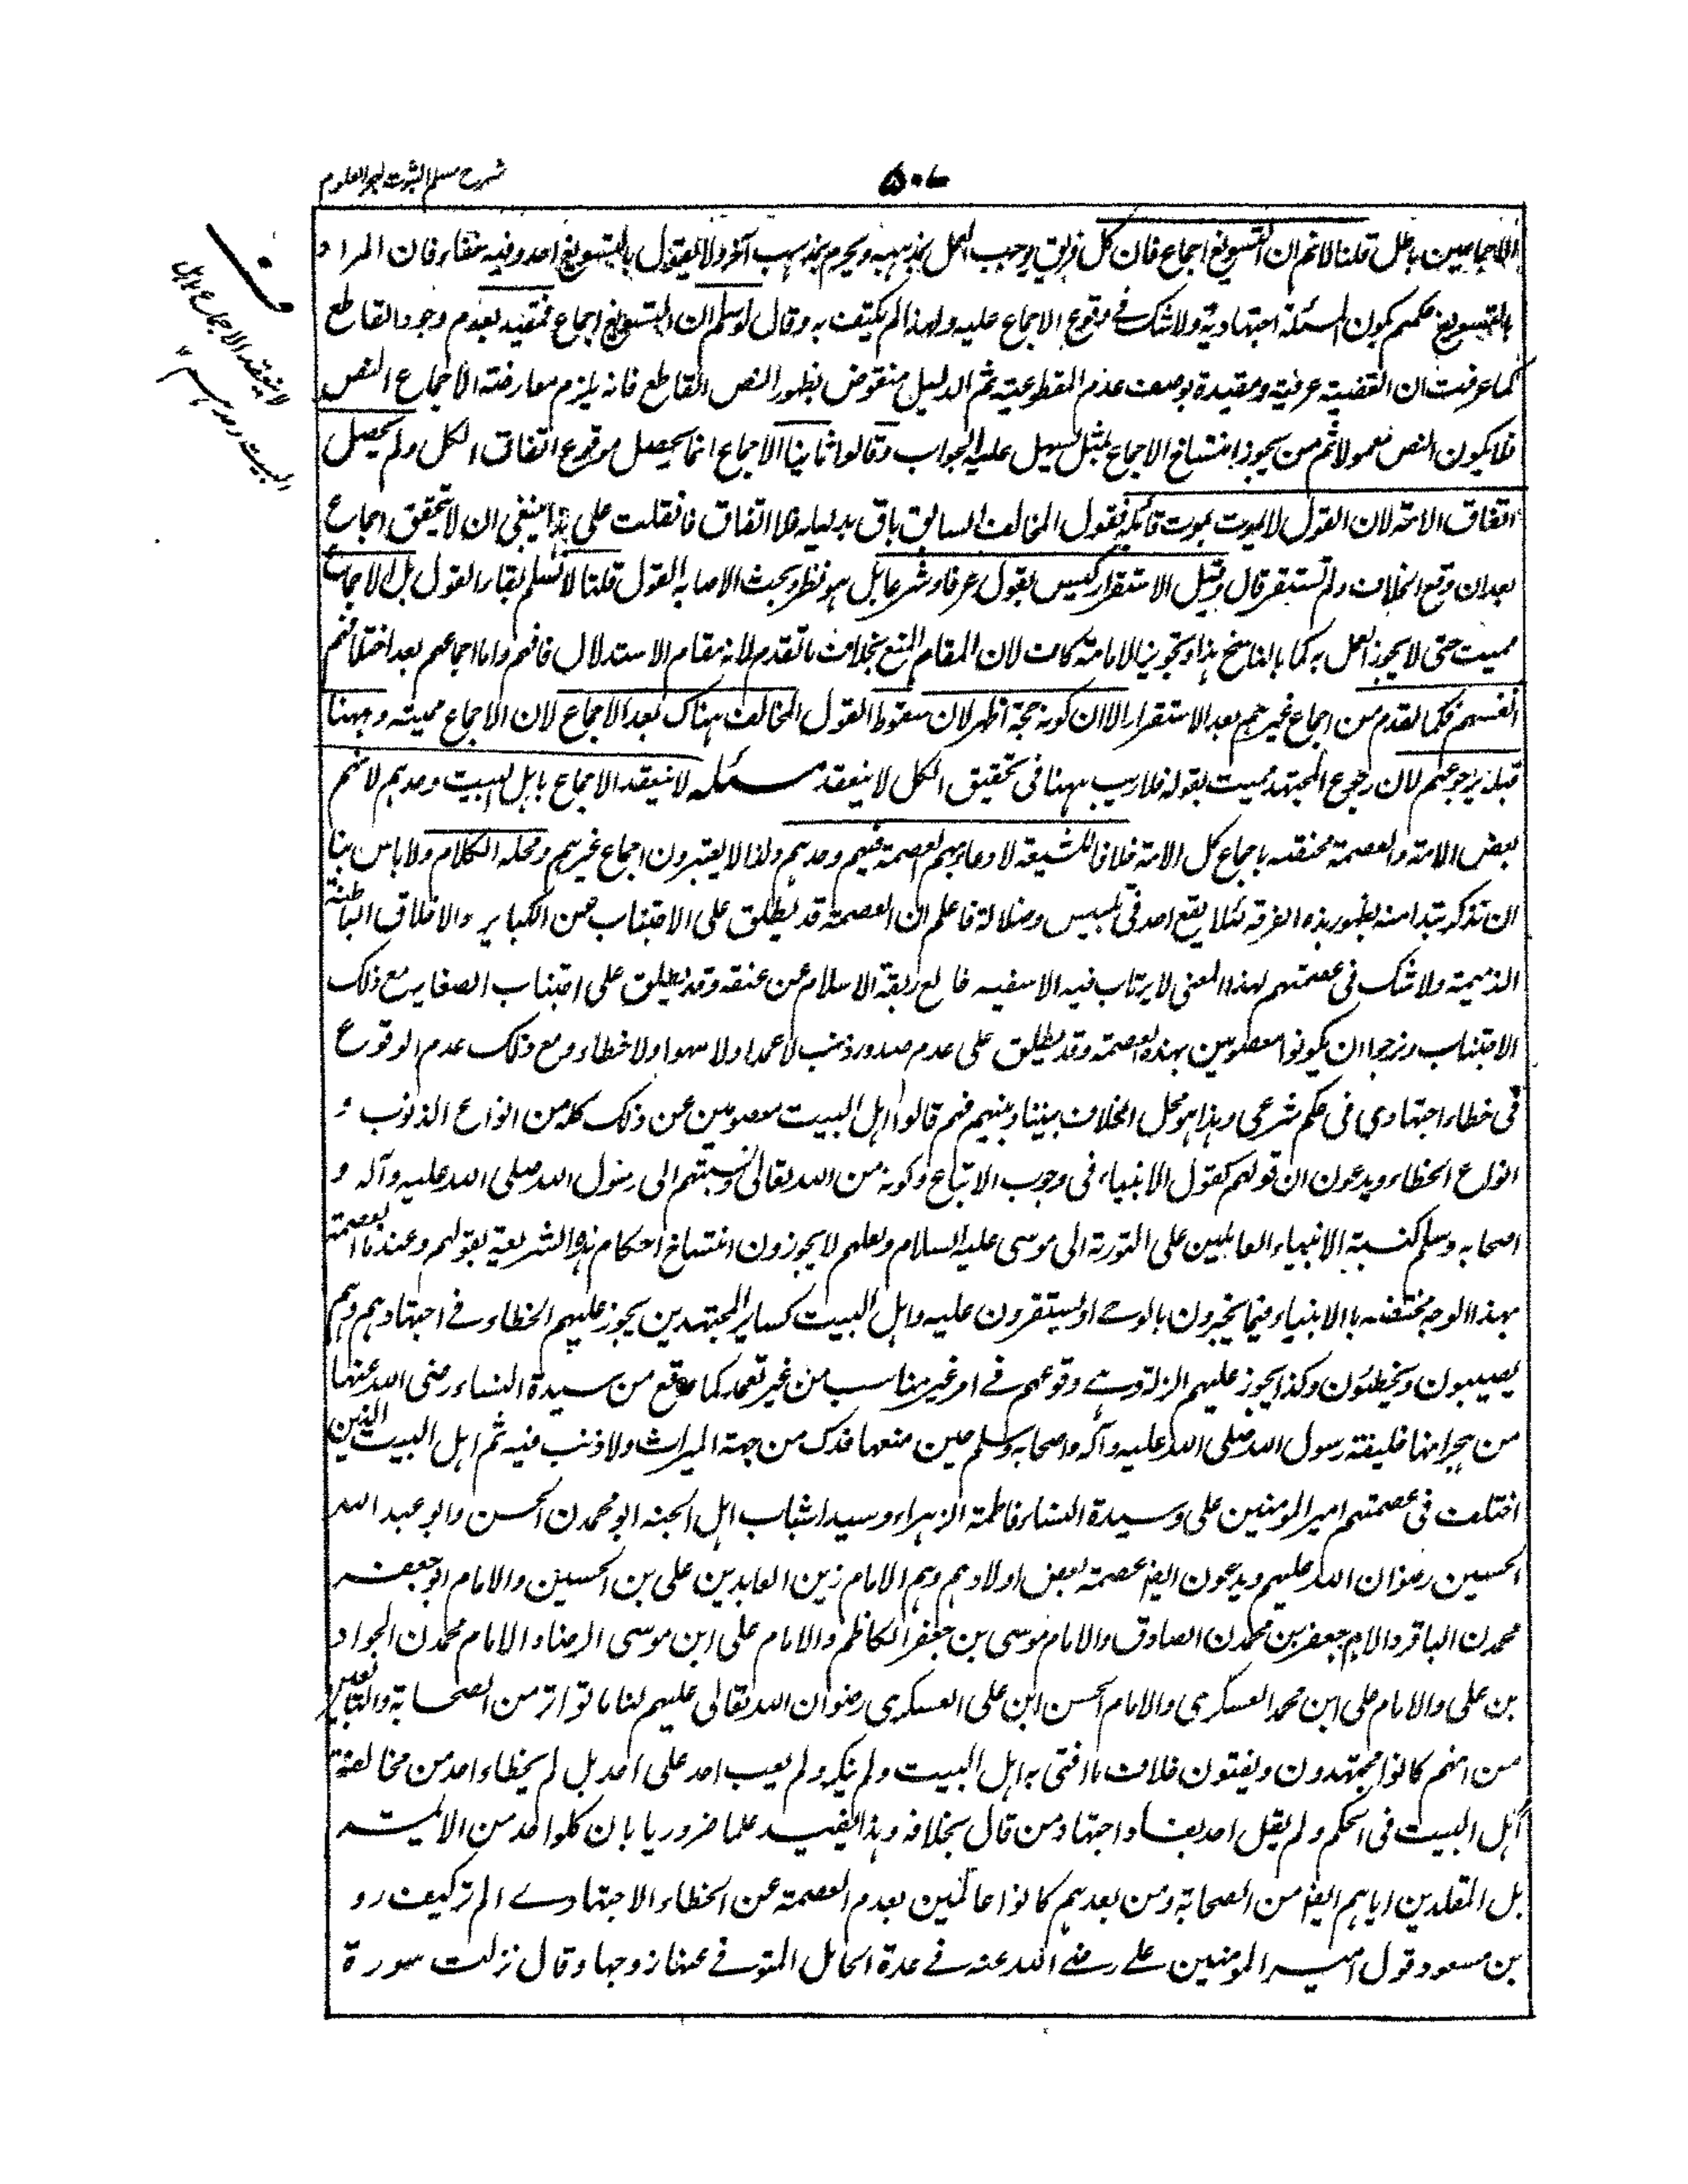 شرح مسلم الثبوت لبحر العلوم
۵۰۷
الاجماعين باطل قلنا لا نم ان التسويغ اجماع فان كل فريق يوجب العمل بمذهبه ويحرم بمذهب آخر ولا يقول بالتسويغ احد وفيه خفاء فان المراد
بالتسويغ حكمهم بكون المسئلة اجتهادية ولا شك في وقوع الاجماع عليه ولهذا لم يكتف به وقال لو سلم ان التسويغ اجماع فمقيد بعدم وجود القاطع
كما عرفت ان القضية عرفية ومقيدة بوصف عدم القطوعية ثم الدليل منقوض بظهور النص القاطع فانه يلزم معارضة الاجماع النص
فلا يكون النص معمولا ثم من يجوز انتساخ الاجماع بمثل يسهل عليه الجواب وقالوا ثانيا الاجماع انما يحصل بوقوع اتفاق الكل ولم يحصل
اتفاق الامة لان القول لا يموت بموت قائله فقول المخالف السابق باق بدليله فلا اتفاق فانقلت على هذا ينبغي ان لا يتحقق اجماع
بعد ان وقع الخلاف ولم يستقر قال وقبل الاستقرار ليس بقول عرفا وشرعا بل هو نظر وبحث لاصابة القول قلنا لا نسلم بقاء القول بل الاجماع
مميت حتى لا يجوز العمل به كما بالناسخ هذا وتجويز الاماتة كاف لان المقام المنع بخلاف ما تقدم لانه مقام الاستدلال فافهم واما اجماعهم بعد اختلافهم
انفسهم فكما تقدم من اجماع غيرهم بعد الاستقرار الا ان كونه حجة اظهر لان سقوط القول المخالف هناك بعد الاجماع لان الاجماع مميته وههنا
قبله برجوعهم لان رجوع المجتهد مميت بقوله فلا ريب ههنا في تحقيق الكل لا ينعقد مسئله لا ينعقد الاجماع باهل البيت وحدهم لانهم
بعض الامة والعصمة مختصة باجماع كل الامة خلافا للشيعة لادعائهم العصمة فيهم وحدهم ولذا لا يعتبرون اجماع غيرهم ومحله الكلام ولا باس بنا
ان نذكر نبذا منه لظهور هذه الفرقة لئلا يقع احد في تلبيس وضلالة فاعلم ان العصمة قد يطلق على الاجتناب عن الكبائر والاخلاق الباطنة
الذميمة ولا شك في عصمتهم بهذا المعنى لا يرتاب فيه الا سفيه خالع ربقة الاسلام عن عنقه وقد يطلق على اجتناب الصغاير مع ذلك
الاجتناب ونرجو ان يكونوا معصومين بهذه العصمة وقد يطلق على عدم صدور ذنب لا عمدا ولا سهوا ولا خطاء ومع ذلك عدم الوقوع
في خطاء اجتهادي في حكم شرعي وهذا هو محل الخلاف بيننا وبينهم فهم قالوا اهل البيت معصومين عن ذلك كله من انواع الذنوب و
انواع الخطاء ويدعون ان قولهم كقول الانبياء في وجوب الاتباع وكونه من الله تعالى ونسبتهم الى رسول الله صلى الله عليه وآله و
اصحابه وسلم كنسبة الانبياء العاملين على التورية الى موسى عليه السلام ولعلهم لا يجوزون انتساخ احكام هذه الشريعة بقولهم وعندنا العصمة
بهذا الوجه مختصة بالانبياء فيما يخبرون بالوحي او يستقرون عليه واهل البيت كساير المجتهدين يجوز عليهم الخطاء في اجتهادهم وهم
يصيبون ويخطئون وكذا يجوز عليهم الزلة وهي وقوعهم في امر غير مناسب من غير تعمد كما وقع من سيدة النساء رضي الله عنها
من هجرانها خليفة رسول الله صلى الله عليه وآله واصحابه وسلم حين منعها فدك من جهة الميراث ولا ذنب فيه ثم اهل البيت الذين
اختلف في عصمتهم امير المومنين علي وسيدة النساء فاطمة الزهراء وسيدا شباب اهل الجنة ابو محمدن الحسن وابو عبد الله
الحسين رضوان الله عليهم ويدعون ايضا عصمة بعض اولادهم وهم الامام زين العابدين علي بن الحسين والامام ابو جعفر
محمدن الباقر والامام جعفر بن محمدن الصادق والامام موسى بن جعفر الكاظم والامام علي ابن موسى الرضا والامام محمدن الجواد
بن علي والامام علي ابن محمد العسكري والامام الحسن ابن علي العسكري رضوان الله تعالى عليهم لنا ما تواتر من الصحابة والتابعين
من انهم كانوا مجتهدون ويفتون خلاف ما افتى به اهل البيت ولم ينكر ولم يعيب احد على احد بل لم يخطاء احد من مخالفة
اهل البيت في الحكم ولم يقل احد بفساد اجتهاد من قال بخلافه وهذا يفيد علما ضروريا بان كل واحد من الائمة
بل المقلدين اياهم ايضا من الصحابة ومن بعدهم كانوا عالمين بعدم العصمة عن الخطاء الاجتهادي الم تر كيف رد
بن مسعود قول امير المومنين علي رضي الله عنه في عدة الحامل المتوفى عنها زوجها وقال نزلت سورة
لا ينعقد الاجماع باهل
البيت وحدهم